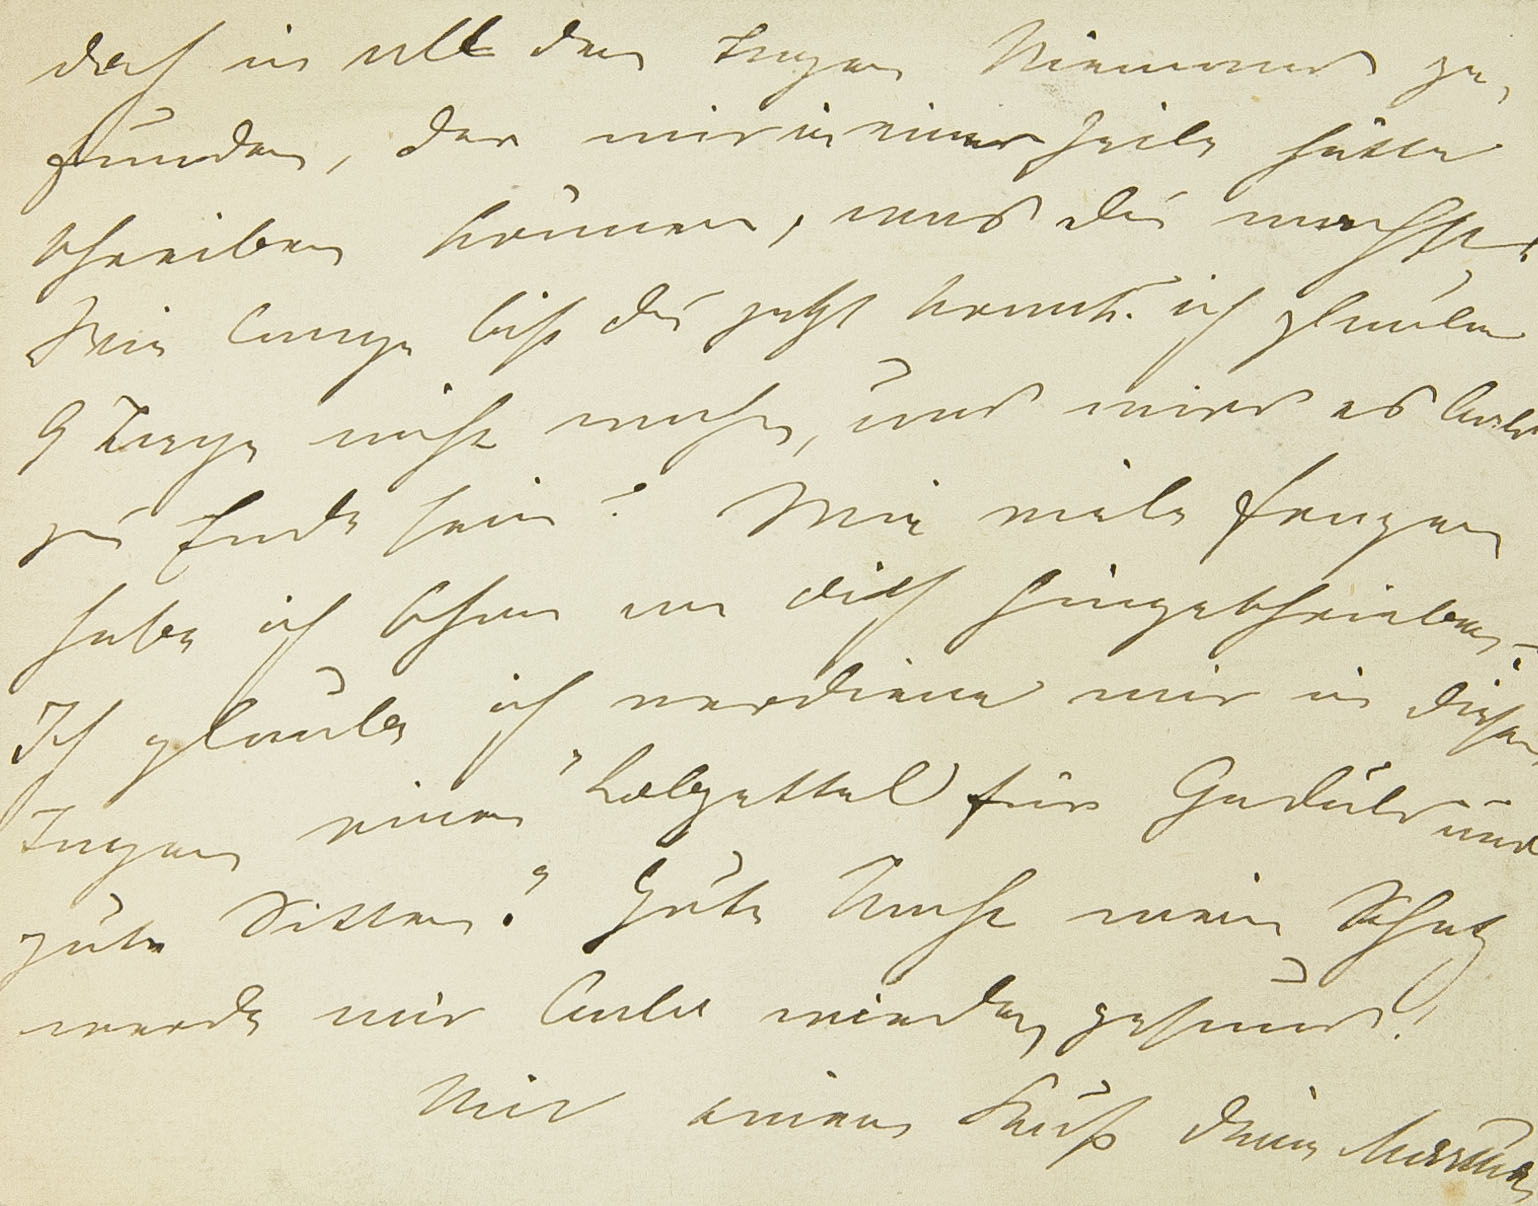 doch in all den Tagen Niemand ge-
funden, der mir in einer Zeile hätte
schreiben können, was du machst.
Wie lange bist du jetzt krank. ich glaube
9 Tage nicht wahr, und wird es bald
zu Ende sein? Wie viele Fragen
habe ich schon an dich hingeschrieben –.
Ich glaube ich verdiene mir in diesen
Tagen einen "Lobzettel für Geduld und
gute Sitten." Gute Nacht mein Schatz
werde mir bald wieder gesund!
Mit einem Kuß deine Martha